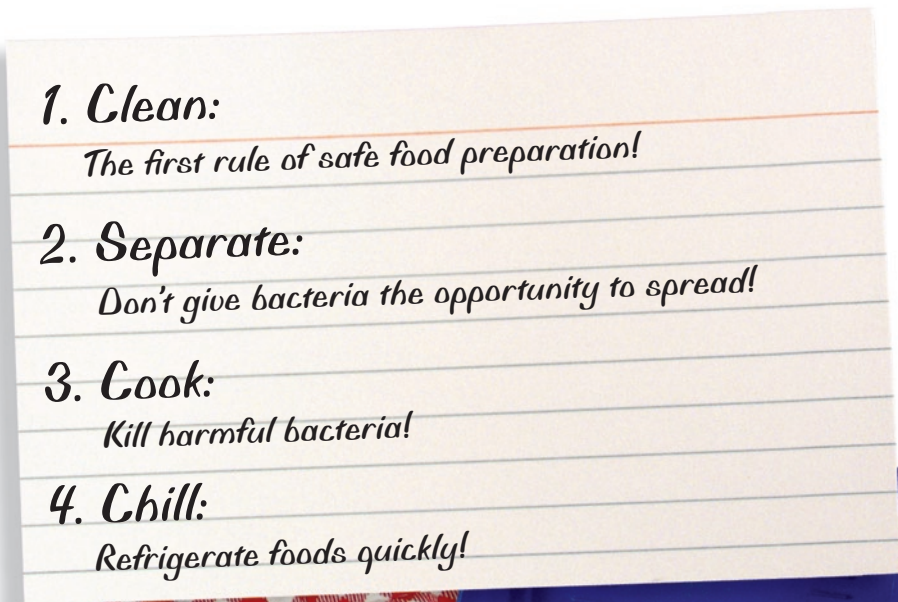 1. Clean:
The first rule of safe food preparation!
2. Separate:
Don't give bacteria the opportunity to spread!
3. Cook:
Kill harmful bacteria!
4. Chill:
Refrigerate foods quickly!